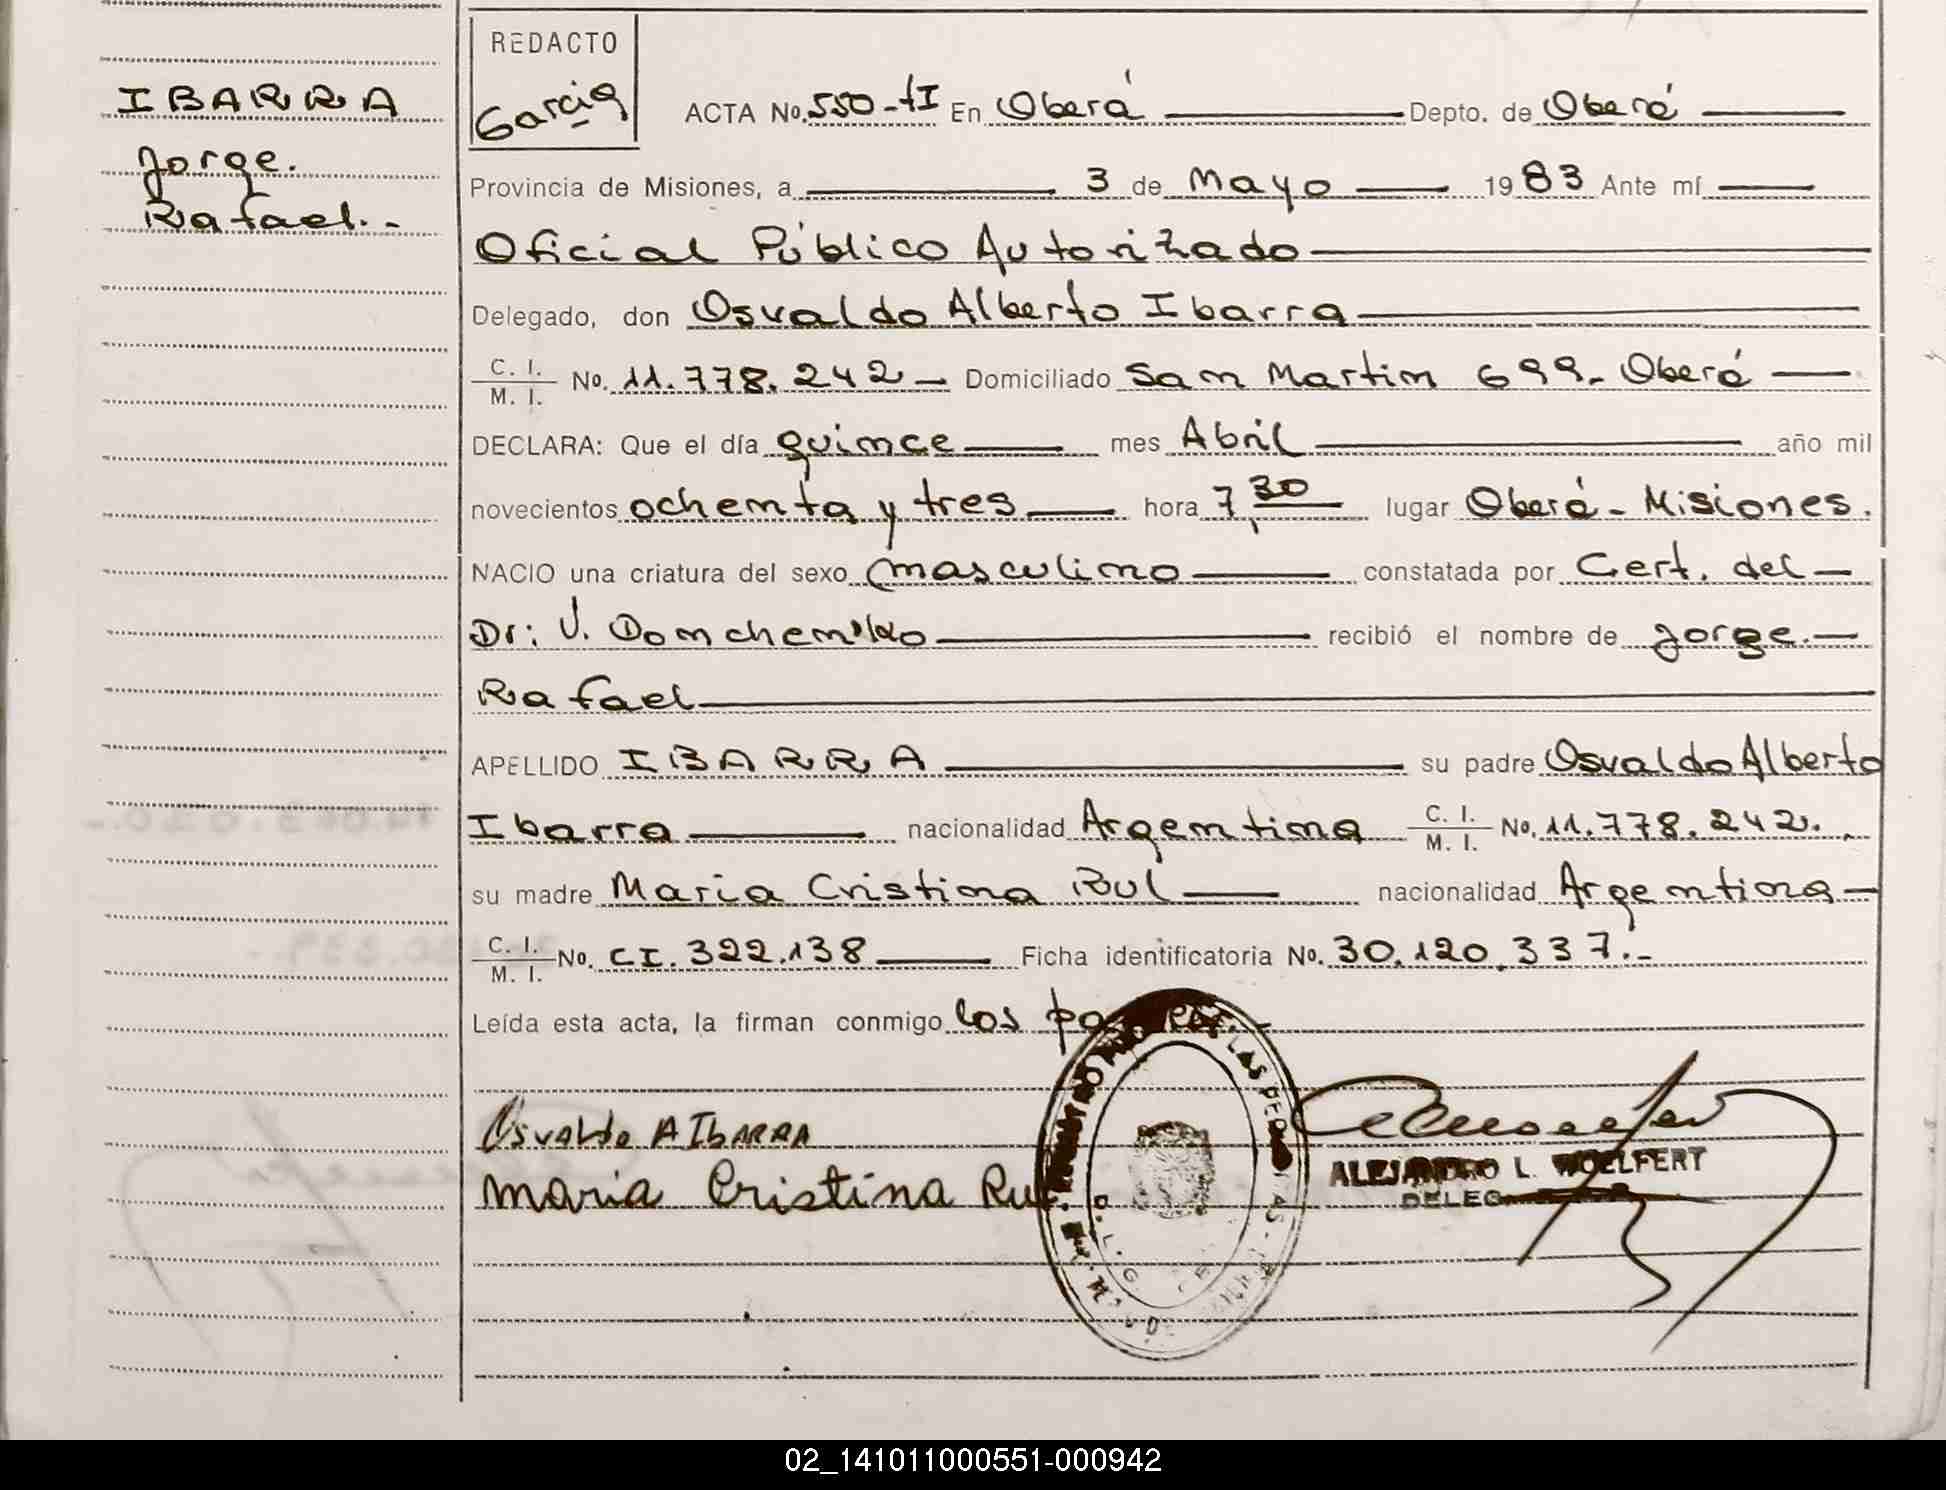 IBARRA
Jorge.
Rafael.-
REDACTO
Garcia
ACTA No. 550-tI En Oberá Depto. de Oberá
Provincia de Misiones, a 3 de Mayo 1983 Ante mí
Oficial Público Autorizado
Delegado, don Osvaldo Alberto Ibarra
C. I. / M. I. No. 11.778.242 Domiciliado San Martin 699- Oberá
DECLARA: Que el día quince mes Abril año mil
novecientos ochenta y tres hora 7,30 lugar Oberá - Misiones.
NACIO una criatura del sexo masculino constatada por Cert. del
Dr: recibió el nombre de Jorge.
Rafael
APELLIDO IBARRA su padre Osvaldo Alberto
Ibarra nacionalidad Argentina C. I. / M. I. No. 11.778.242.
su madre Maria Cristina Rul nacionalidad Argentina
C. I. / M. I. No. CI. 322.138 Ficha identificatoria No. 30.120.337.-
Leída esta acta, la firman conmigo los padres.
Osvaldo A Ibarra
Maria Cristina Rul
ALEJANDRO L. WOELFERT
DELEG
02_141011000551-000942